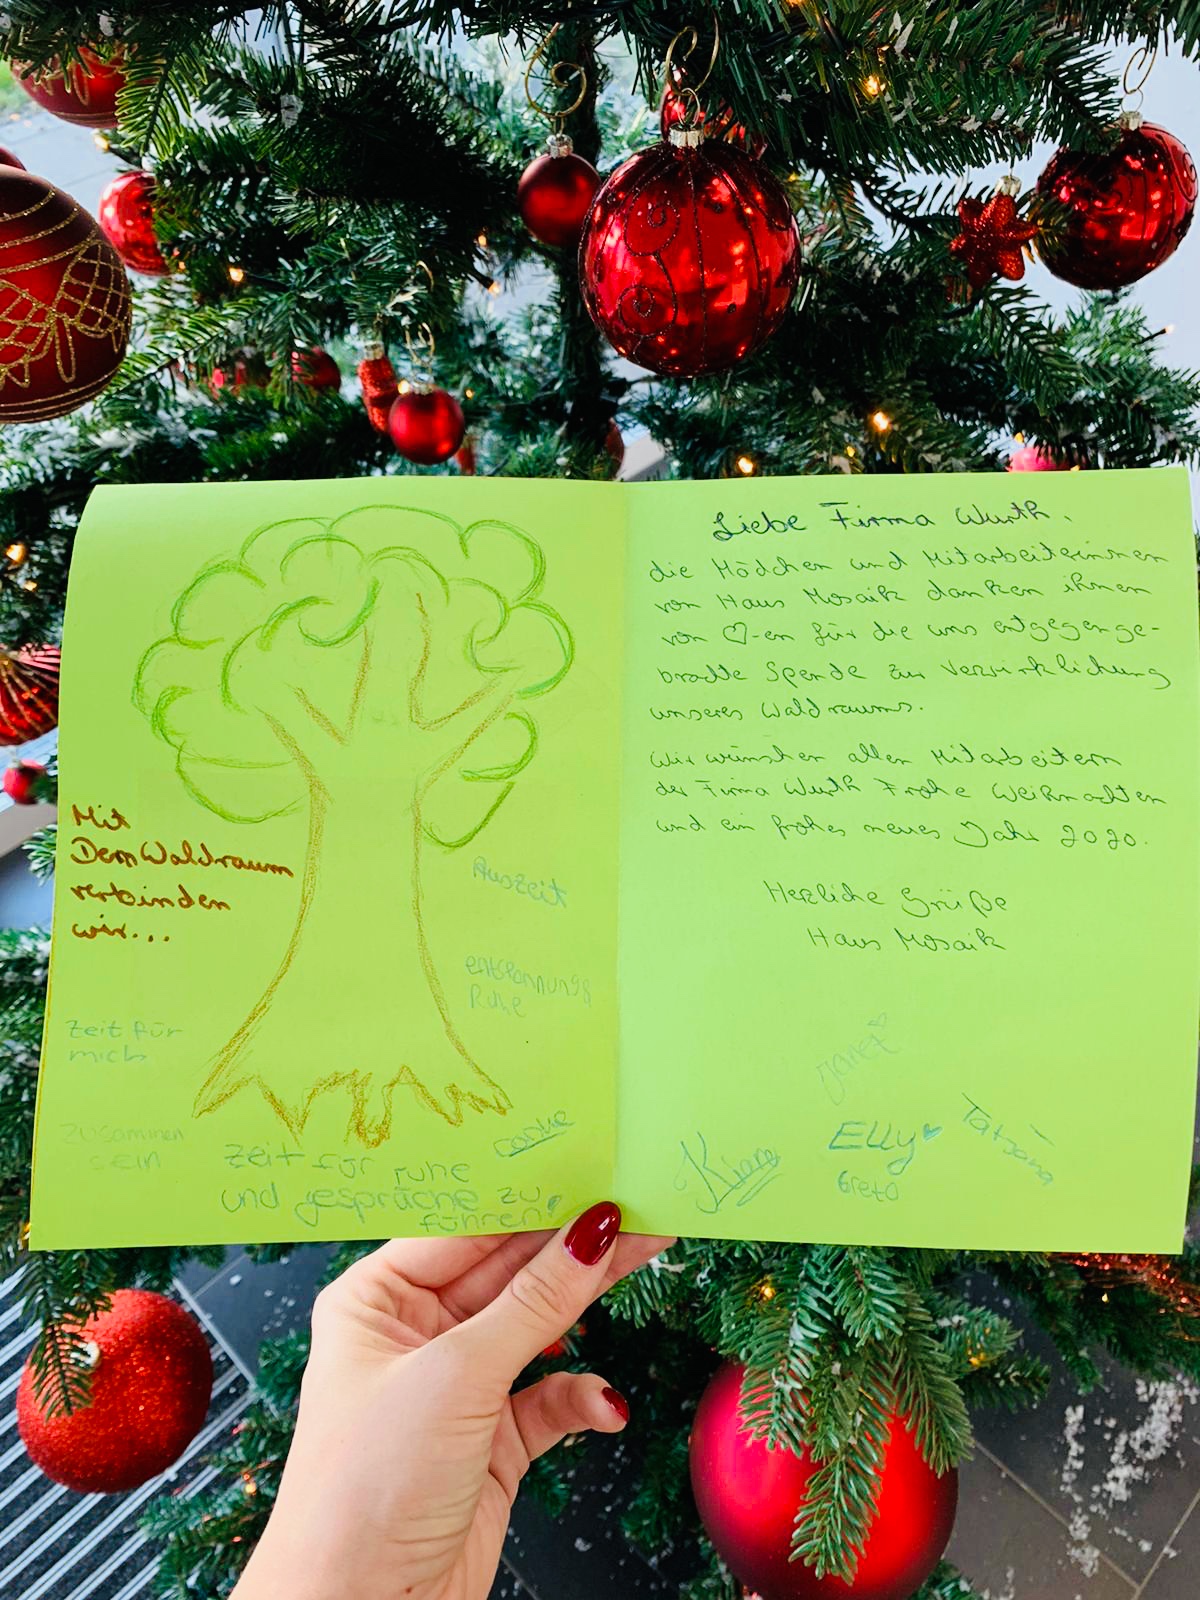 Mit
Dem Waldraum
verbinden
wir...
Auszeit
entspannung&
Ruhe
Zeit für
mich
Zusammen
sein
Zeit für ruhe
und gespräche zu
führen!
Liebe Firma Wurth,
die Mädchen und Mitarbeiterinnen
von Haus Mosaik danken ihnen
von ♡-en für die uns entgegenge-
brachte Spende zur Verwirklichung
unseres Waldraums.
Wir wünschen allen Mitarbeitern
der Firma Wurth Frohe Weihnachten
und ein frohes neues Jahr 2020.
Herzliche Grüße
Haus Mosaik
Janet
Kiara
Elly
Greta
Tatjana